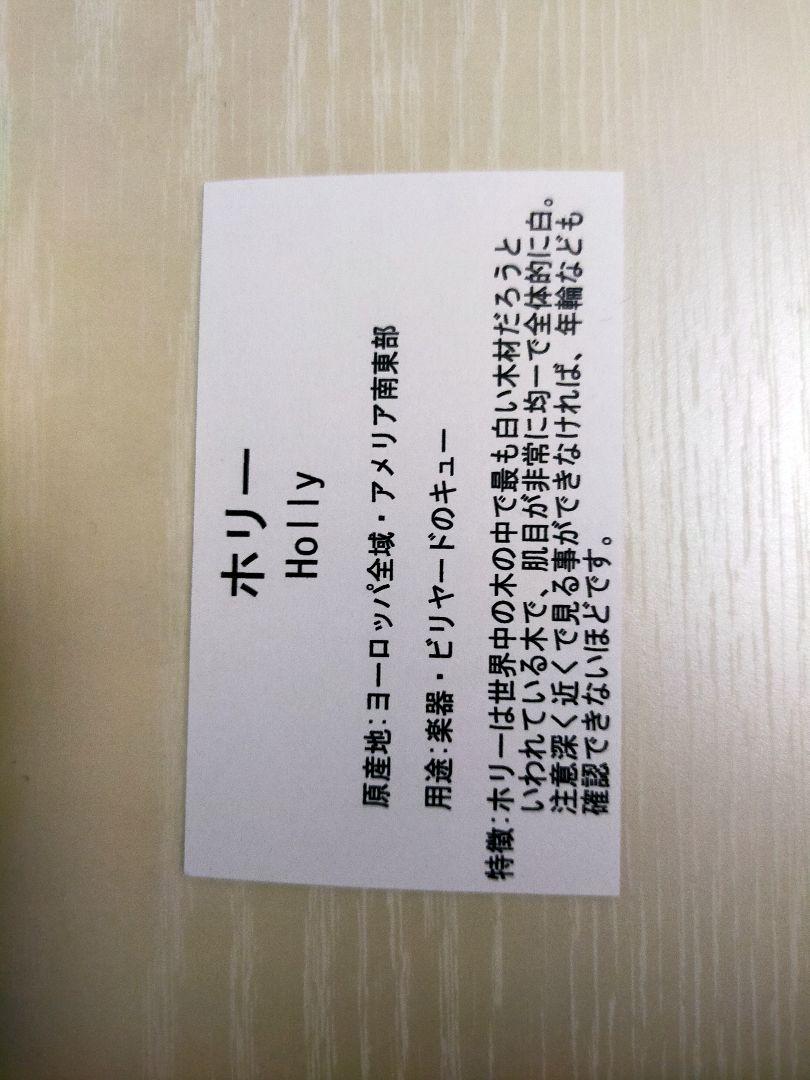 ホリー
Holly
原産地：ヨーロッパ全域・アメリア南東部
用途：楽器・ビリヤードのキュー
特徴：ホリーは世界中の木の中で最も白い木材だろうと
いわれている木で、肌目が非常に均一で全体的に白。
注意深く近くで見る事ができなければ、年輪なども
確認できないほどです。